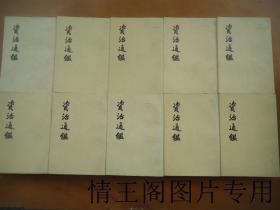 资治通鉴
资治通鉴
资治通鉴
资治通鉴
资治通鉴
资治通鉴
资治通鉴
资治通鉴
资治通鉴
资治通鉴
情王阁图片专用